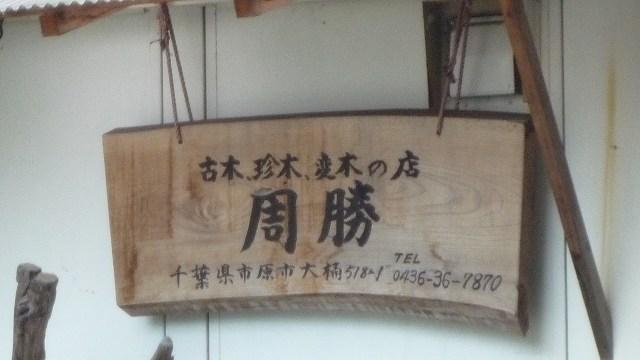 古木、珍木、変木の店
周勝
千葉県市原市大桶518-1 TEL 0436-36-7870